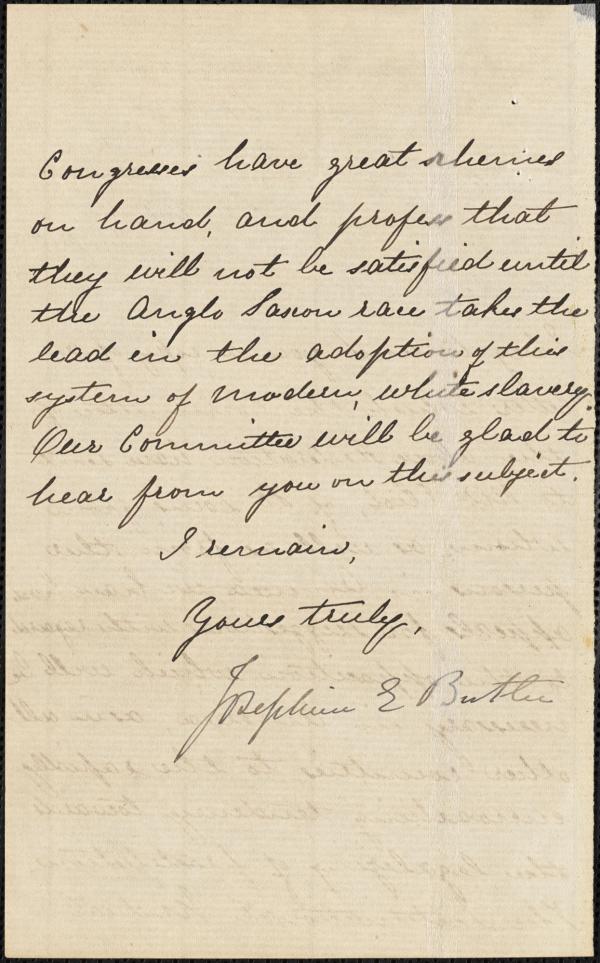 Congresses have great schemes
on hand, and profess that
they will not be satisfied until
the Anglo Saxon race takes the
lead in the adoption of this
system of modern, white slavery.
Our Committee will be glad to
hear from you on this subject.
I remain,
Yours truly,
Josephine E Butler